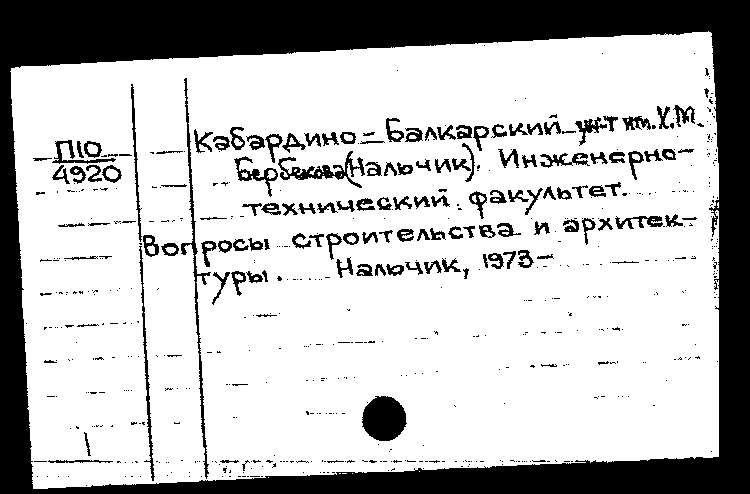 П10
4920
Кабардино-Балкарский ун-т им. Х.М.
Бербекова (Нальчик). Инженерно-
технический факультет.
Вопросы строительства и архитек-
туры. Нальчик, 1973-